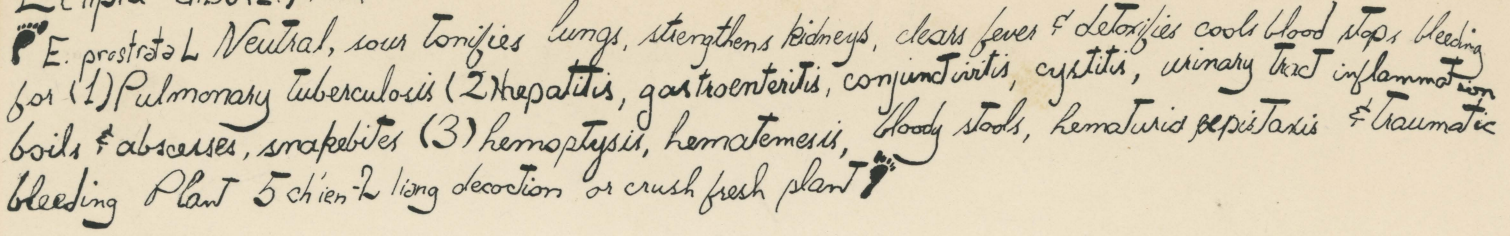 E. prostrata L Neutral, sour tonifies lungs, strengthens kidneys, clears fever & detoxifies cools blood stops bleeding
for (1) Pulmonary tuberculosis (2) hepatitis, gastroenteritis, conjunctivitis, cystitis, urinary tract inflammation
boils & abscesses, snakebites (3) hemoptysis, hematemesis, bloody stools, hematuria epistaxis & traumatic
bleeding Plant 5 ch'ien-2 liang decoction or crush fresh plant